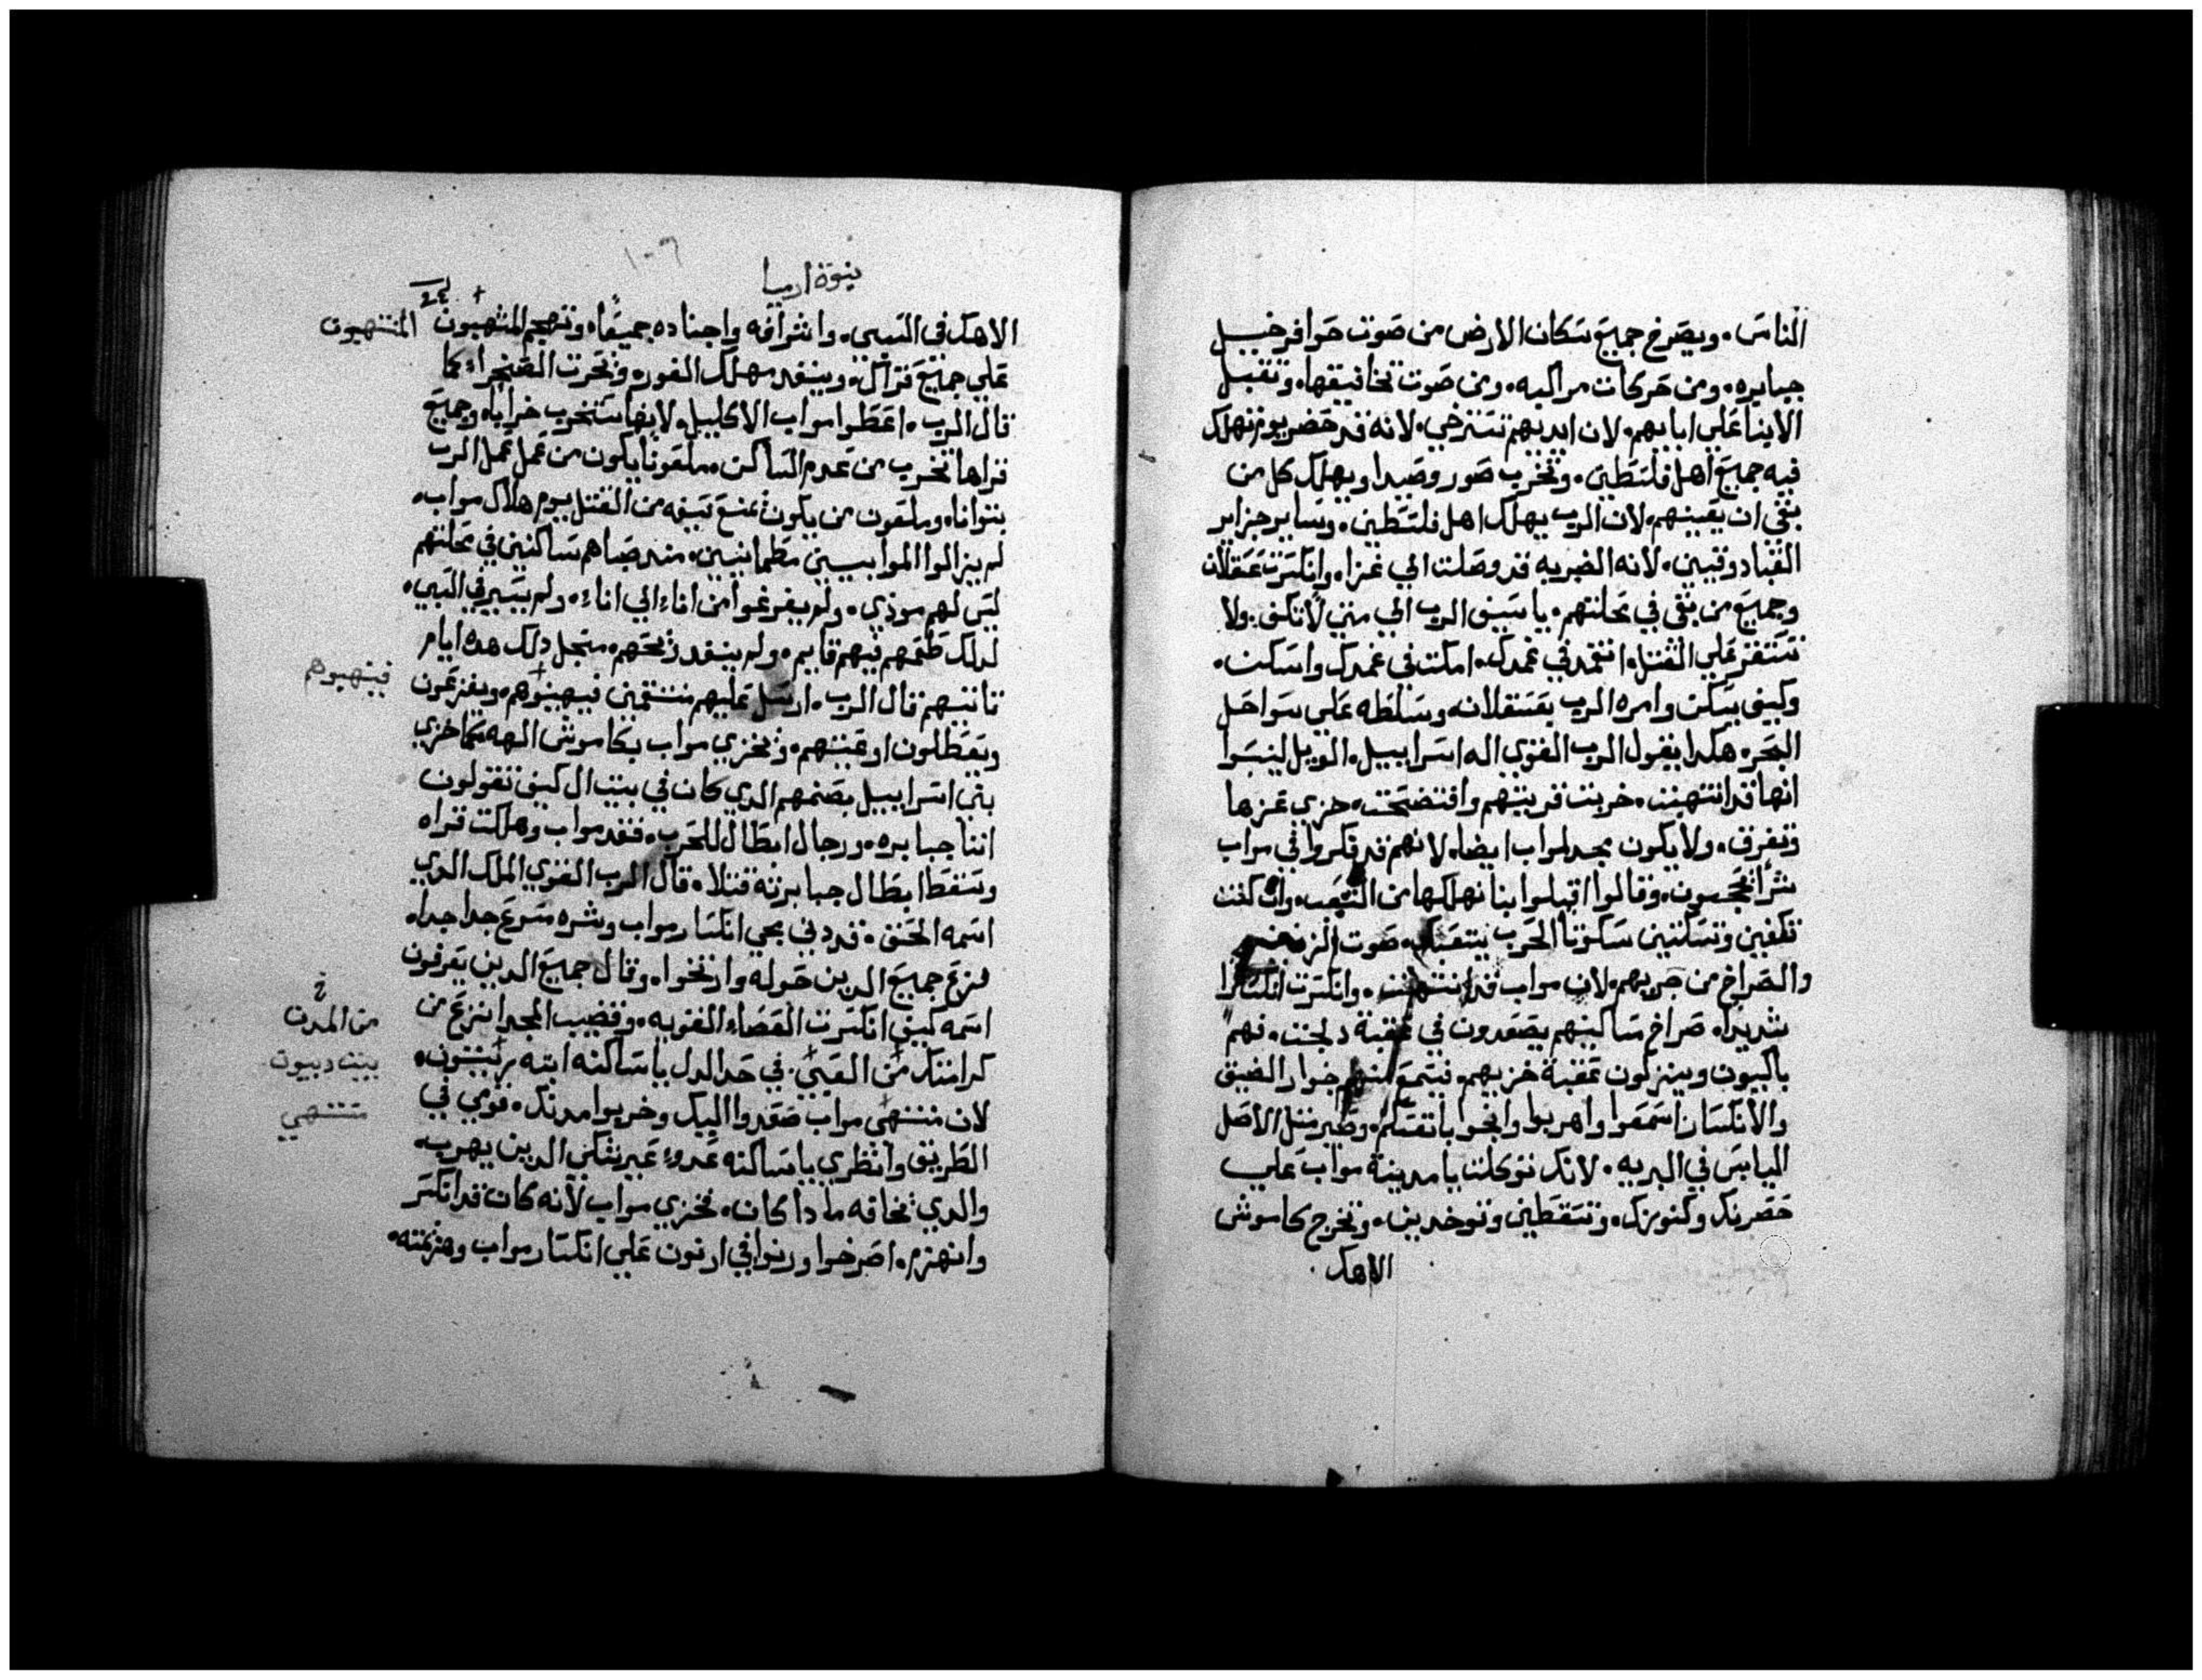 الناس. ويصرخ جميع سكان الارض من صوت حوافر خيل
جبابره. ومن حركات مراكبه. ومن صوت تخافيقها. وتقبل
الابنا علي ابايهم. لان ايديهم تسترخي. لانه قد حضر يوم تهلك
فيه جميع اهل فلسطين. وتخرب صور وصيدا ويهلك كل من
بقي ان يعينهم. لان الرب يهلك اهل فلسطين. وساير جزاير
القبادوقيين. لانه الضربه قد وصلت الي غزا. وانكسرت عسقلان
وجميع من بقي في محلتهم. يا سيف الرب الي متي لا تكف. ولا
تستقر علي القتل. انتقد في غمدك. امكث في غمدك واسكن.
وكيف يسكن وامره الرب بعسقلان. وسلطه علي سواحل
البحر. هكدا يقول الرب القوي اله اسراييل. الويل لينبوا
انها قد انتهبت. خربت قريتهم وافتضحت. خزي عزها
وتفرق. ولا يكون مجد لمواب ايضا. لانهم قد فكروا في مواب
شرا بحجبون. وقالوا اقبلوا بنا نهلكها من الشعب. وان كنت
تكفين وتسكتين سكوتا الحرب يتعبك. صوت
والصراخ من حربهم. لان مواب قد انتهبت. وانكسرت انكسارا
شديدا. صراخ مساكينهم يصعدون في عقبة دلجت. فهم
باكيون وينزلون عقبة خزيهم. فيسمع منهم خوار الضيق
والانكسار اسمعوا واهربوا وانجوا بانفسكم. وصير مثل الاصل
اليابس في البريه. لانك توكلت يا مدينة مواب علي
حضرنك وكنوزك. وتسقطين وتوخدين. وتخرج كاموش
الاهك
نبوة ارميا
١٠٦
الاهك في السبي. واشرافه واجناده جميعا. وتهجم المنتهبون المنتهبون
علي جميع قراك. وينفد مهلك الغور. وتحرث الصحراء كما
قال الرب. اعطوا مواب الاكليل. لانها ستخرب خرابا. وجميع
قراها تخرب من عدم الساكن. ملعونا يكون من عمل عمل الرب
بتوانا. وملعون من يكون يمنع سيفه من القتل يوم هلاك مواب.
لم يزالوا الموابيين مطمانيين. مند صباهم ساكنين في محلتهم
ليس لهم مودي. ولم يفرغوا من اناء الي اناء. ولم يسير في السبي.
لدلك طعمهم فيهم قايم. ولم ينفد ريحهم. مجل دلك هده ايام
تاتيهم قال الرب. ارسل عليهم منتقمين فيهبوهم. ويفزعون فينهبوهم
ويعطلون اوعيتهم. وتخزي مواب بكاموش الهه كما خزي
بني اسراييل بصنمهم الدي كان في بيت ال كيف تقولون
اننا جبابره. ورجال ابطال للحرب. فقد مواب وهلكت قراه
وسقط ابطال جبابرته قتلا. قال الرب القوي الملك الدي
اسمه الحنق. قد دني مجي انكسار مواب وشره مسرع جدا جدا.
فزع جميع الدين حوله وارتخوا. وقال جميع الدين يعرفون
اسمه كيف انكسرت العصاء القويه. وقضيب المجد انزع من
كرامتك من العتي. في حد الدل يا ساكنه ابنه من المدن
لان منتهي مواب صعدوا اليك وخربوا مدنك. قومي في بيت ديبون
الطريق وانظري يا ساكنه عدوء عبر نتكي الدين يهرب. منتهي
والدي تخافه مادا كان. فخزي مواب لانه كان قد انكسر
وانهزم. اصرخوا ورنوا في ارنون علي انكسار مواب وهزيمته.